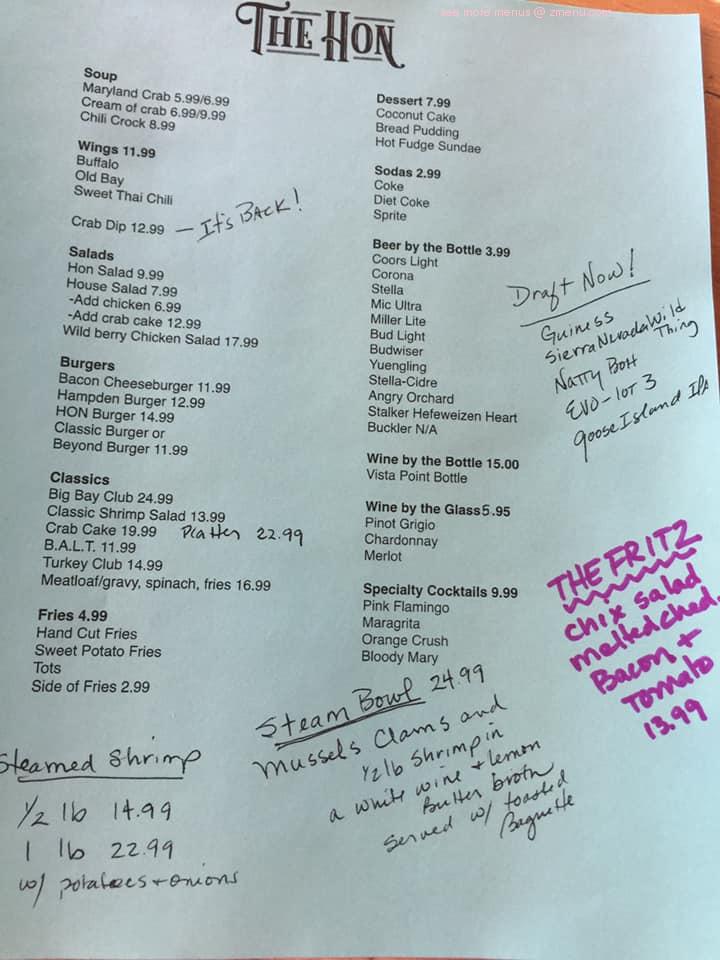 see more menus @ zmenu.com
THE HON
Soup
Maryland Crab 5.99/6.99
Cream of crab 6.99/9.99
Chili Crock 8.99
Wings 11.99
Buffalo
Old Bay
Sweet Thai Chili
Crab Dip 12.99 – It's BACK!
Salads
Hon Salad 9.99
House Salad 7.99
-Add chicken 6.99
-Add crab cake 12.99
Wild berry Chicken Salad 17.99
Burgers
Bacon Cheeseburger 11.99
Hampden Burger 12.99
HON Burger 14.99
Classic Burger or
Beyond Burger 11.99
Classics
Big Bay Club 24.99
Classic Shrimp Salad 13.99
Crab Cake 19.99 Platter 22.99
B.A.L.T. 11.99
Turkey Club 14.99
Meatloaf/gravy, spinach, fries 16.99
Fries 4.99
Hand Cut Fries
Sweet Potato Fries
Tots
Side of Fries 2.99
Steamed Shrimp
1/2 lb 14.99
1 lb 22.99
w/ potatoes + onions
Dessert 7.99
Coconut Cake
Bread Pudding
Hot Fudge Sundae
Sodas 2.99
Coke
Diet Coke
Sprite
Beer by the Bottle 3.99
Coors Light
Corona
Stella
Mic Ultra
Miller Lite
Bud Light
Budwiser
Yuengling
Stella-Cidre
Angry Orchard
Stalker Hefeweizen Heart
Buckler N/A
Wine by the Bottle 15.00
Vista Point Bottle
Wine by the Glass 5.95
Pinot Grigio
Chardonnay
Merlot
Specialty Cocktails 9.99
Pink Flamingo
Maragrita
Orange Crush
Bloody Mary
Steam Bowl 24.99
Mussels Clams and
1/2 lb Shrimp in
a white wine + lemon
Butter broth
Served w/ toasted
Baguette
Draft Now!
Guiness
Sierra Nevada Wild
Thing
Natty Boh
EVO-lot 3
Goose Island IPA
THE FRITZ
chix salad
melted ched.
Bacon +
Tomato
13.99